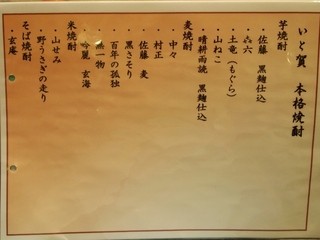 いと賀 本格焼酎
芋焼酎
・佐藤 黒麹仕込
・㐂六
・土竜（もぐら）
・山ねこ
・晴耕雨読 黒麹仕込
麦焼酎
・中々
・村正
・佐藤 麦
・黒さそり
・百年の孤独
一物
・吟麗 玄海
米焼酎
・山せみ
・野うさぎの走り
そば焼酎
・玄庵